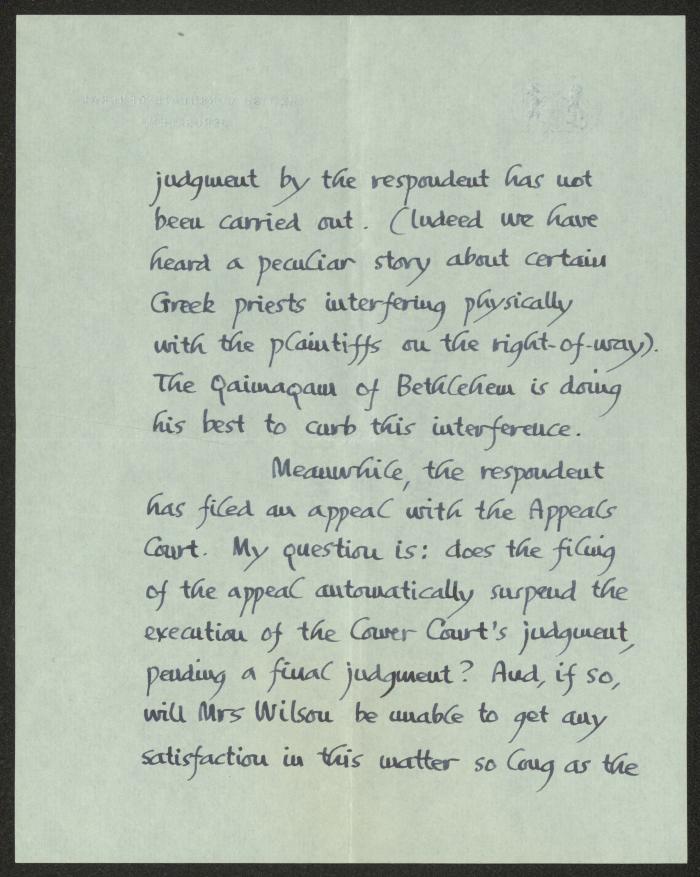 judgment by the respondent has not
been carried out. (Indeed we have
heard a peculiar story about certain
Greek priests interfering physically
with the plaintiffs on the right-of-way).
The Qaimaqam of Bethlehem is doing
his best to curb this interference.
Meanwhile, the respondent
has filed an appeal with the Appeals
Court. My question is: does the filing
of the appeal automatically suspend the
execution of the Lower Court's judgment,
pending a final judgment? And, if so,
will Mrs Wilson be unable to get any
satisfaction in this matter so long as the